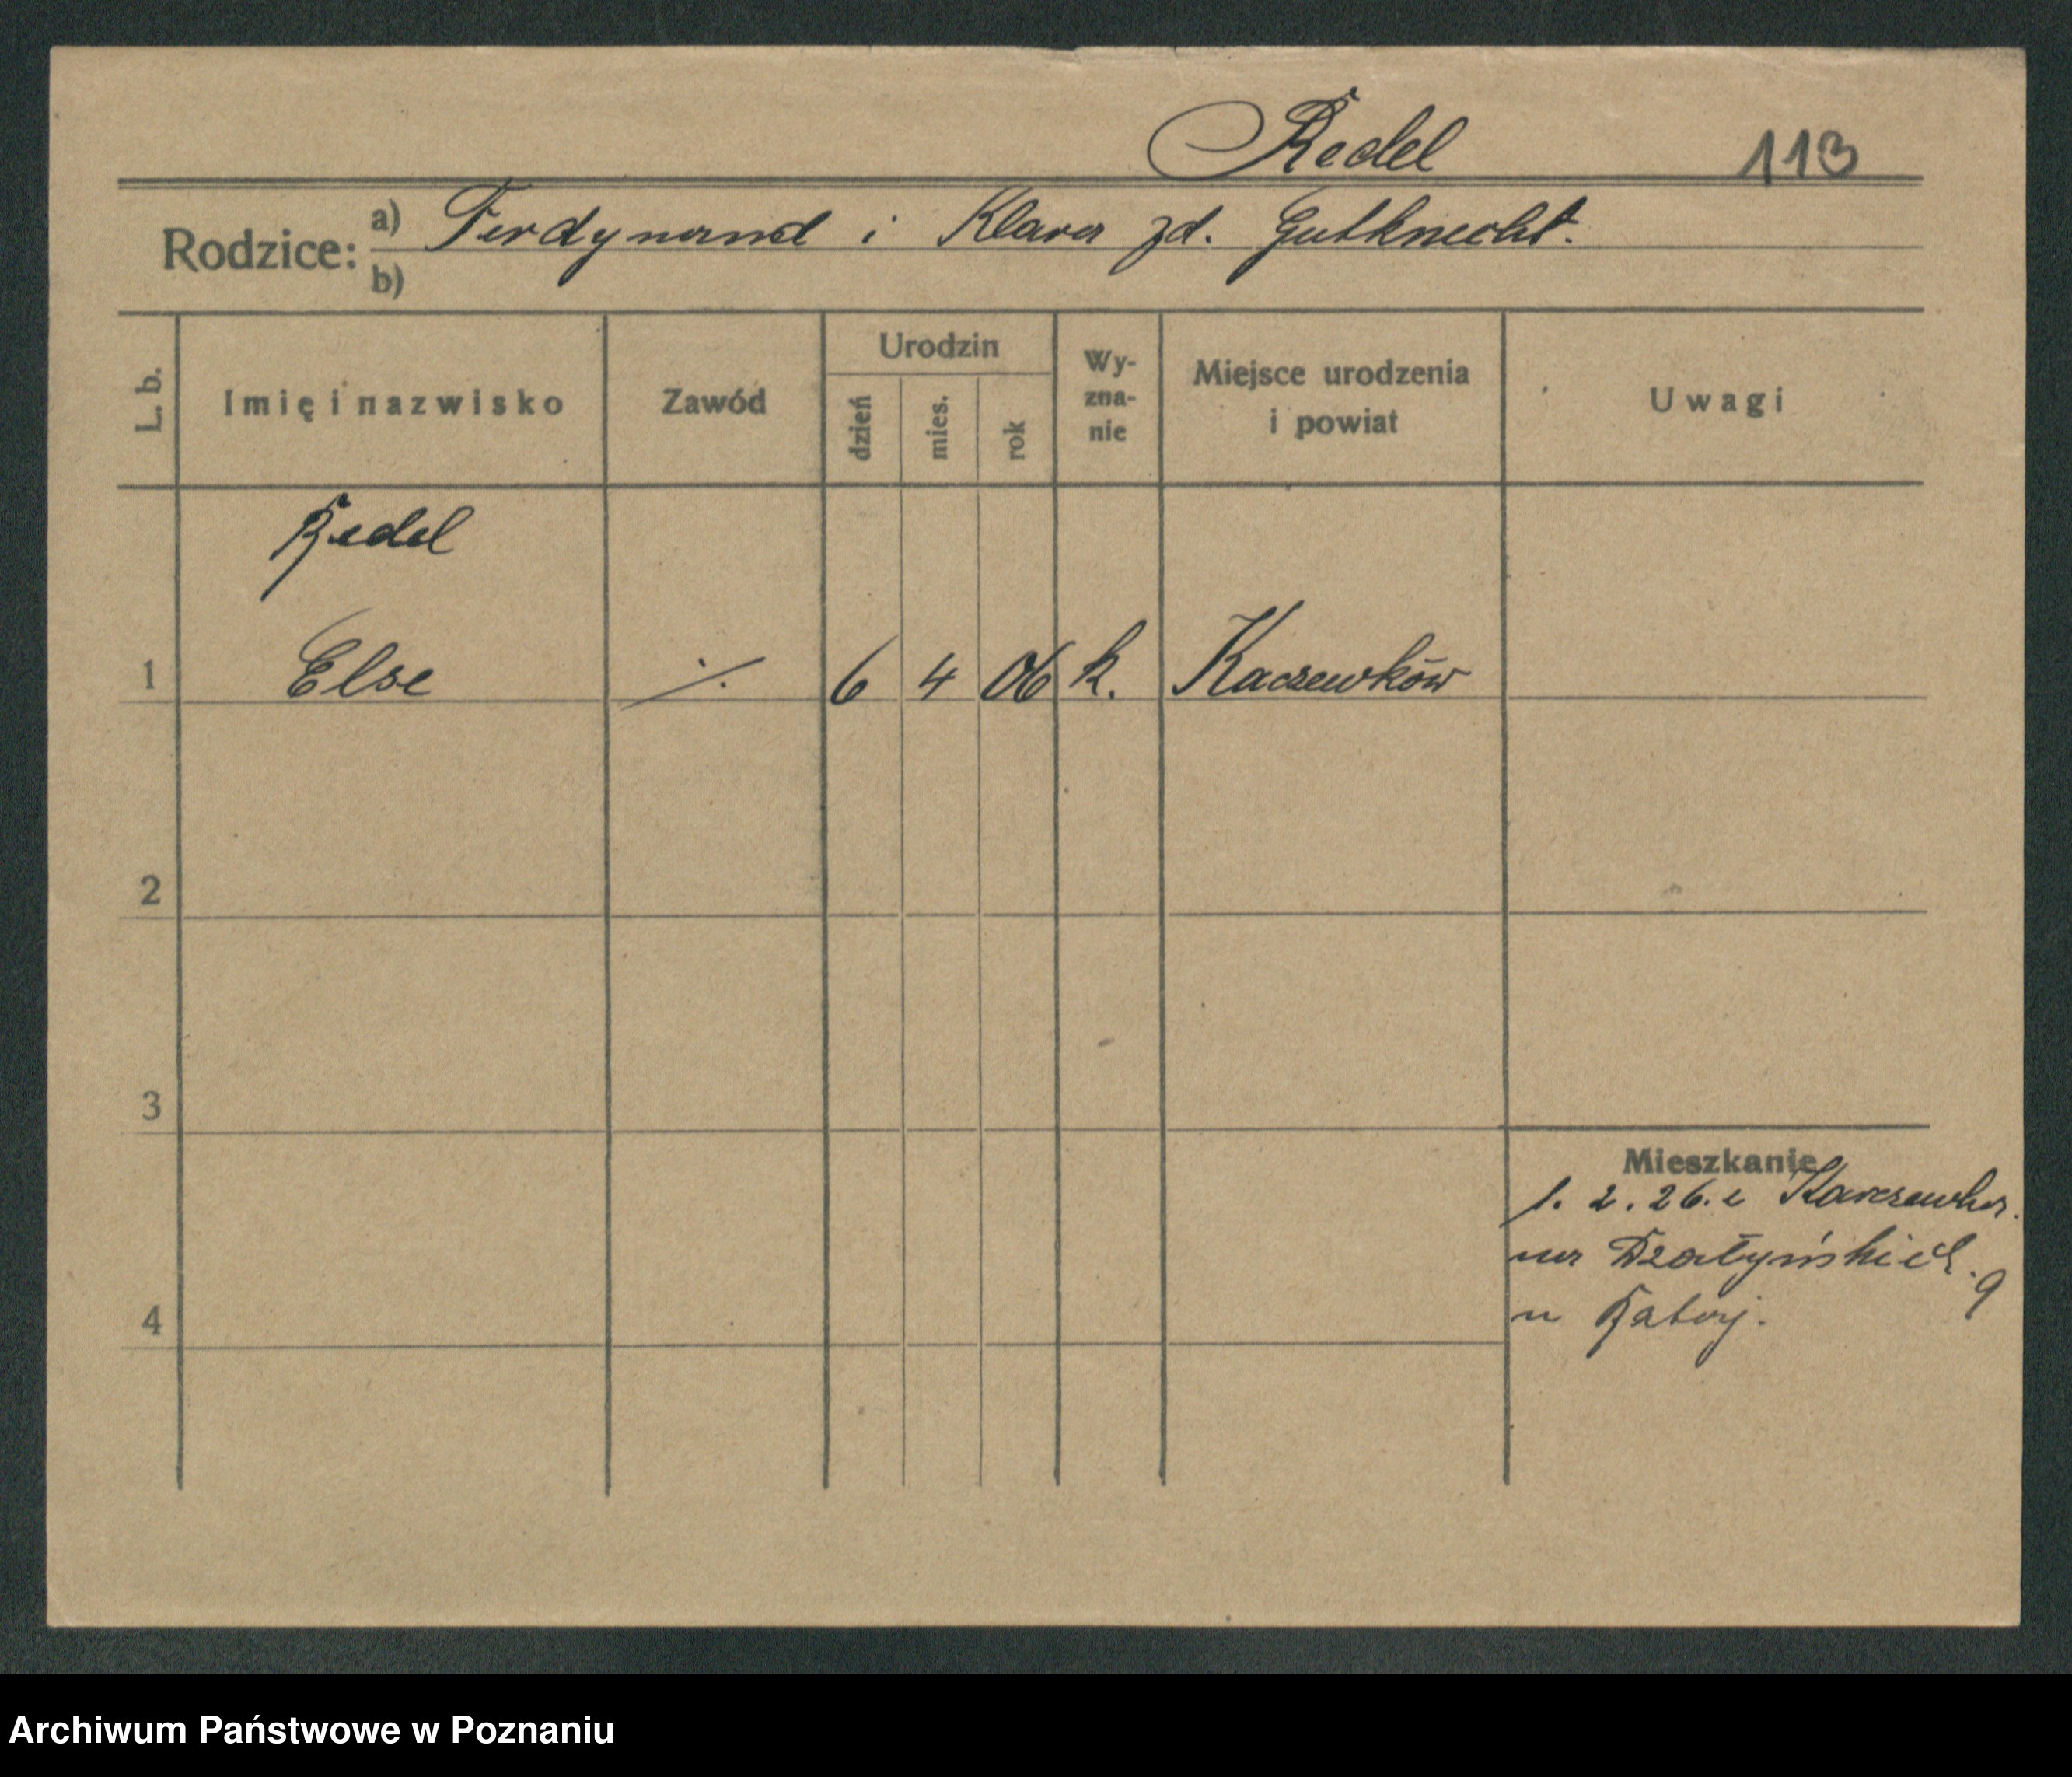 Redel 113
Rodzice: a) Ferdynand i Klara zd. Gutknecht.
b)
L. b. Imię i nazwisko Zawód Urodzin dzień mies. rok Wy-zna-nie Miejsce urodzenia i powiat Uwagi
Redel
1 Else ./. 6 4 06 k. Kaczewków
2
3
Mieszkanie
1. 2. 26. z
na Działyńskich 9
4 u
Archiwum Państwowe w Poznaniu